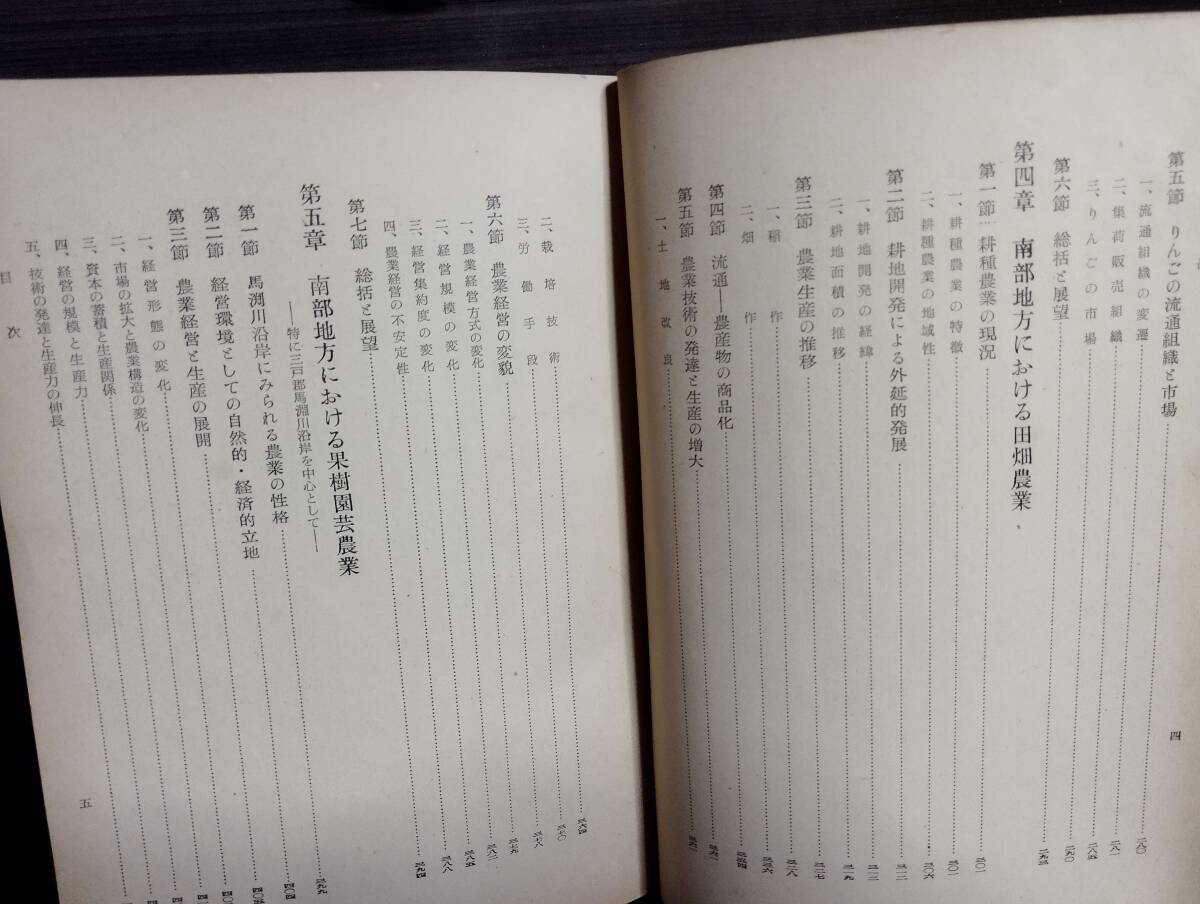 第五節 りんごの流通組織と市場
一、流通組織の変遷……二八〇
二、集荷販売組織……二八一
三、りんごの市場……二八五
第六節 総括と展望……二九〇
第四章 南部地方における田畑農業……二九三
第一節 耕種農業の現況……三〇一
一、耕種農業の特徴……三〇一
二、耕種農業の地域性……三〇六
第二節 耕地開発による外延的発展……三一二
一、耕地開発の経緯……三一二
二、耕地面積の推移……三一九
第三節 農業生産の推移……三二七
一、稲作……三二八
二、畑作……三三六
第四節 流通――農産物の商品化……三五四
第五節 農業技術の発達と生産の増大……三六一
一、土地改良……三六一
四
二、栽培技術
三、労働手段……三七〇
第六節 農業経営の変貌
一、農業経営方式の変化
二、経営規模の変化
三、経営集約度の変化
四、農業経営の不安定性
第七節 総括と展望……三九四
第五章 南部地方における果樹園芸農業……三九九
――特に三戸郡馬淵川沿岸を中心として――
第一節 馬淵川沿岸にみられる農業の性格
第二節 経営環境としての自然的・経済的立地
第三節 農業経営と生産の展開
一、経営形態の変化
二、市場の拡大と農業構造の変化
三、資本の蓄積と生産関係
四、経営の規模と生産力
五、技術の発達と生産力の伸長
目次
五